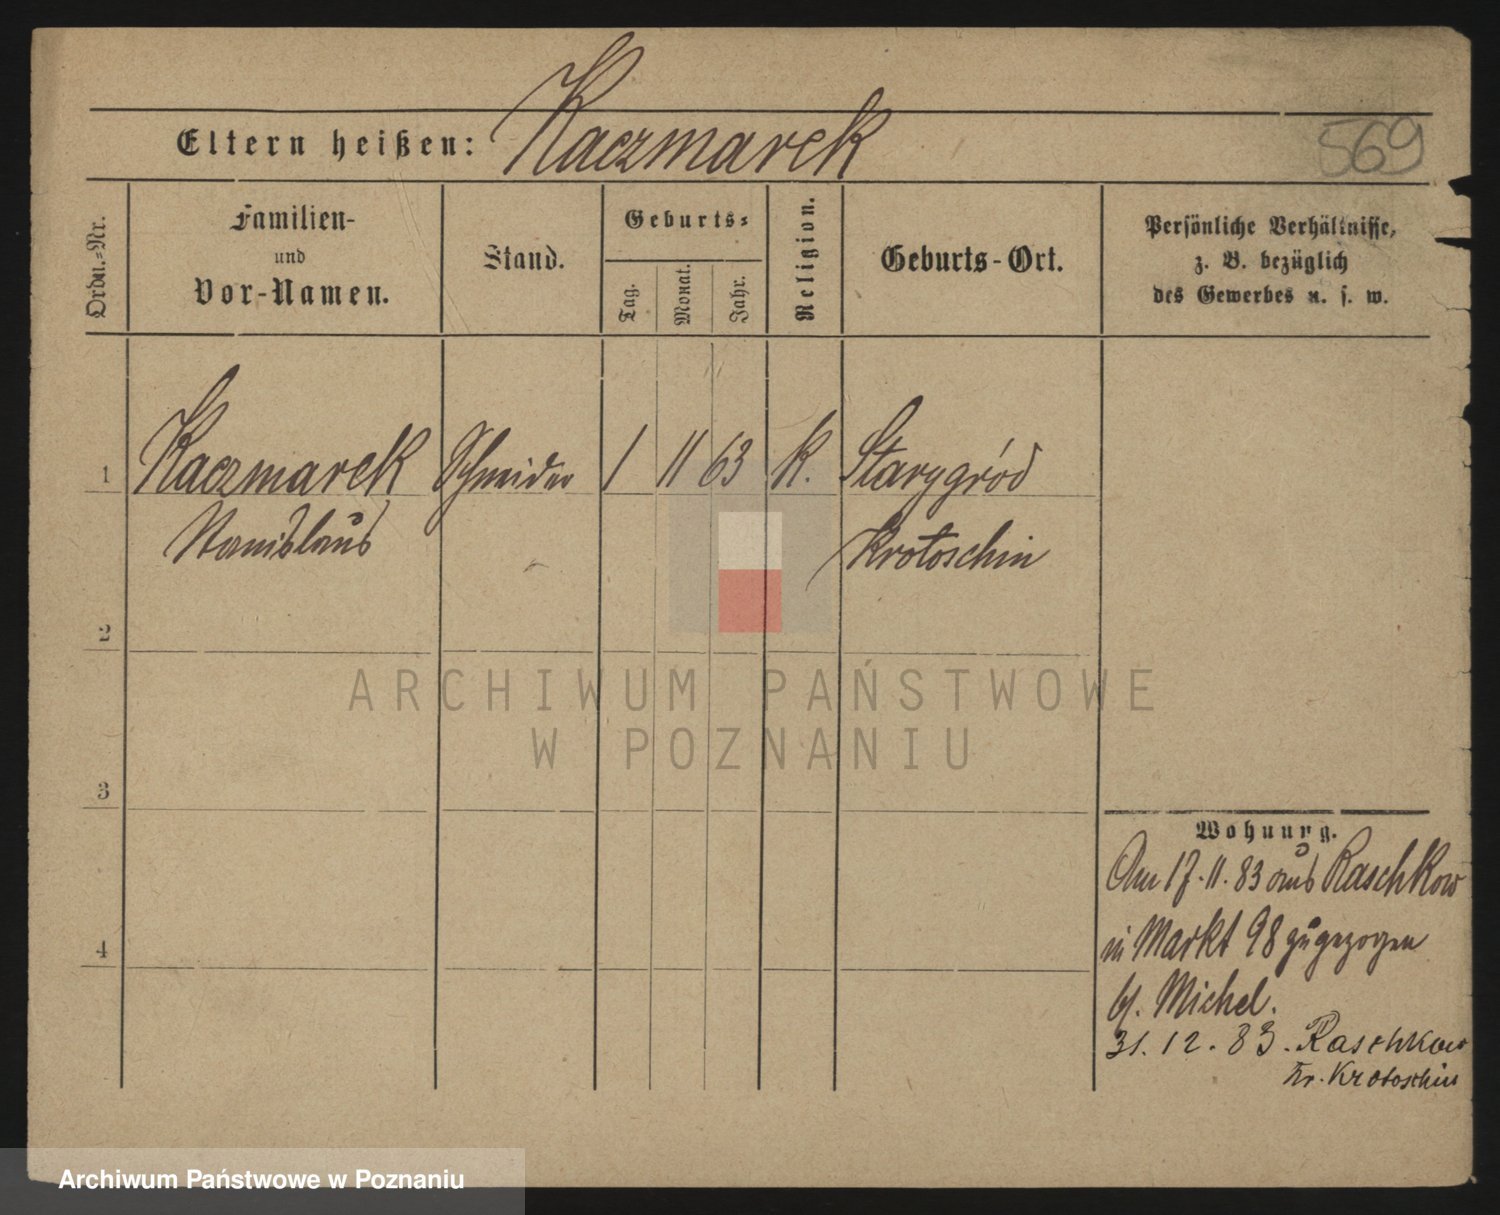 Eltern heißen: Kaczmarek
569
Ordn.-Nr.
Familien-
und
Vor-Namen.
Stand.
Geburts-
Tag.
Monat.
Jahr.
Religion.
Geburts-Ort.
Persönliche Verhältnisse,
z. B. bezüglich
des Gewerbes u. s. w.
1 Kaczmarek Schneider 1 11 63 k. Starygród
Stanislaus Krotoschin
2
ARCHIWUM PAŃSTWOWE
W POZNANIU
3
Wohnung.
Am 17.11.83 aus Raschkow
in Markt 98 zugezogen
4
b/. Michel.
31.12.83. Raschkow
Kr. Krotoschin
Archiwum Państwowe w Poznaniu